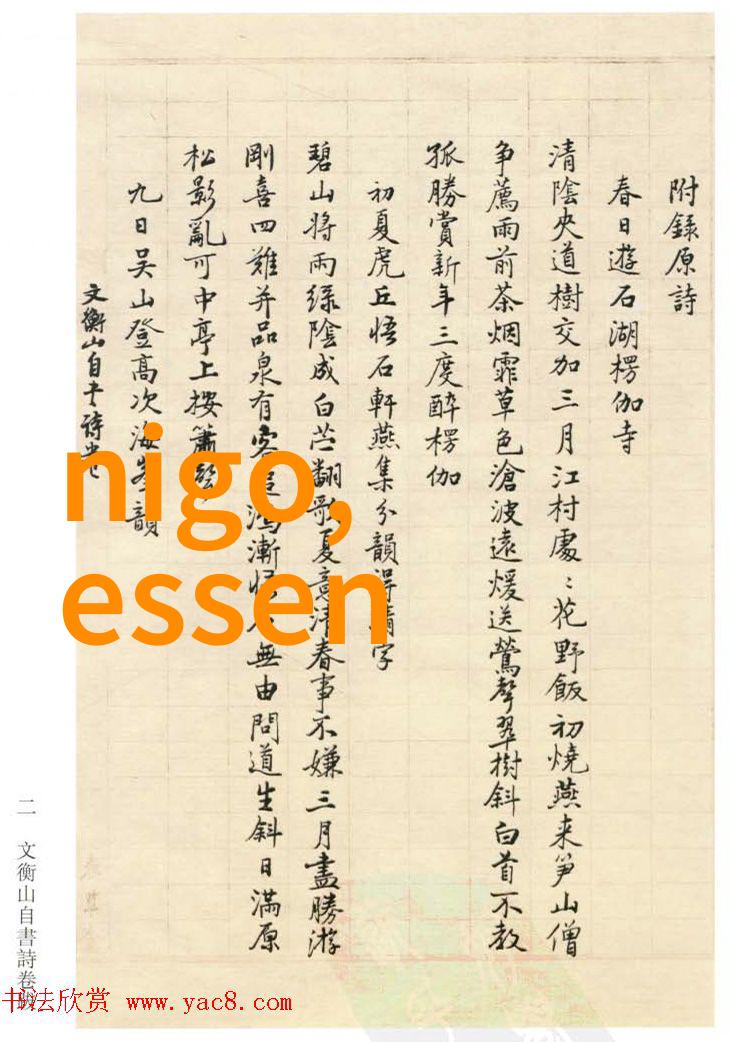 附錄原詩
春日遊石湖楞伽寺
清陰夾道樹交加三月江村處〻花野飯初燒燕来笋山僧
争薦雨前茶烟霏草色滄波遠煖送鶯聲翠樹斜白首不教
孤勝賞新年三度醉楞伽
初夏虎丘悟石軒燕集分韻得清字
碧山將雨綠陰成白苎翻歌夏意清春事不嫌三月盡勝游
剛喜四難并品泉有客 鴻漸悟 無由問道生斜日滿原
松影亂可中亭上按簫聲
九日吳山登高次海 韻
文衡山自書詩卷
nigo,
essen
二 文衡山自書詩卷跋
书法欣赏 www.yac8.com